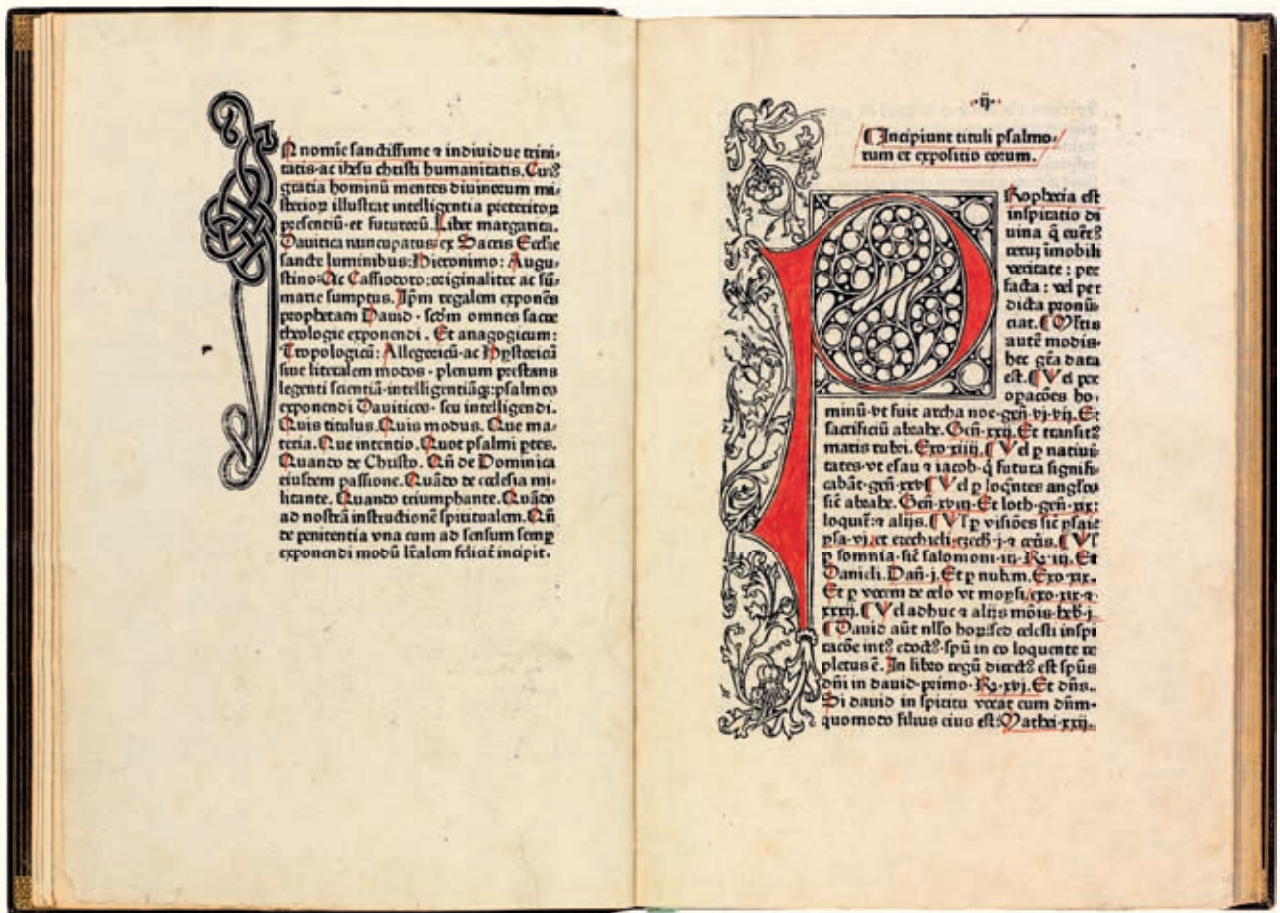 N nomīe sanctissime ꝛ individue trini-
tatis·ac ihesu christi humanitatis. Cuiꝰ
gratia hominū mentes divinorum mi-
sterioꝝ illustrat intelligentia preteritoꝝ
presentiū·et futuroꝝ. Liber margarita.
Davitica nuncupatus: ex Sacris Ecclīe
sancte luminibus: Hieronimo: Augu-
stino: Ac Cassiotoro: originaliter ac sū-
marie sumptus. Ip̄m regalem exponēs
prophetam David· scd̄m omnes sacre
theologie exponendi. Et anagogicum:
Tropologicū: Allegoricū·ac Hystoricū
siue literalem modos· plenum prestans
legenti scientiā·intelligentiāqꝫ: psalmos
exponendi Daviticos· seu intelligendi.
Quis titulus. Quis modus. Que ma-
teria. Que intentio. Quot psalmi ptes.
Quando de Christo. Qn̄ de Dominica
eiusdem passione. Quādo de ecclesia mi-
litante. Quando triumphante. Quādo
ad nostrā instructionē spiritualem. Qn̄
de penitentia vna cum ad sensum semꝑ
exponendi modū lr̄alem feliciē incipit.
·ij·
¶ Incipiunt tituli psalmo-
rum et expositio eorum.
P Rophetia est
inspiratio di
uina q̄ euētꝰ
rerum īmobili
veritate: per
facta: vel per
dicta pronū-
ciat. ¶ Multis
autē modis·
hec gr̄a data
est. ¶ Vel per
opacōes ho-
minū·vt fuit archa noe·gen̄·vj·vij. Et
sacrificiū abrahe. Gen̄·xxij. Et transitꝰ
maris rubri. Exo·xiiij. ¶ Vel ꝑ natiui-
tates·vt esau ꝛ iacob·q̄ futura signifi-
cabāt·gen̄·xxv ¶ Vel ꝑ loq̄ntes angl̄os
sic̄ abrahe. Gen̄·xviij. Et loth·gen̄·xix:
loquūt̄: ꝛ alijs. ¶ Vl̄ ꝑ visiōes sic̄ ysaie
ysa·vj. et ezechieli·ezech̄·j·ꝛ cet̄is. ¶ Vl̄
ꝑ somnia·sic̄ salomoni·iij·Rꝫ·iij. Et
Danieli. Dan̄·j. Et ꝑ nubem. Exo·xix.
Et ꝑ vocem de celo vt moysi. exo·xix·ꝛ
xxxij. ¶ Vel adhuc ꝛ alijs mōis·heb̄·j.
¶ David aūt celesti inspi
racōe spū in eo loquente re
pletus ē. In libro regū directꝰ est spūs
dn̄i in david·primo·Rꝫ·xvj. Et dn̄s.
Si david in spiritu vocat eum dn̄m·
quomodo filius eius est: Mathei·xxij.